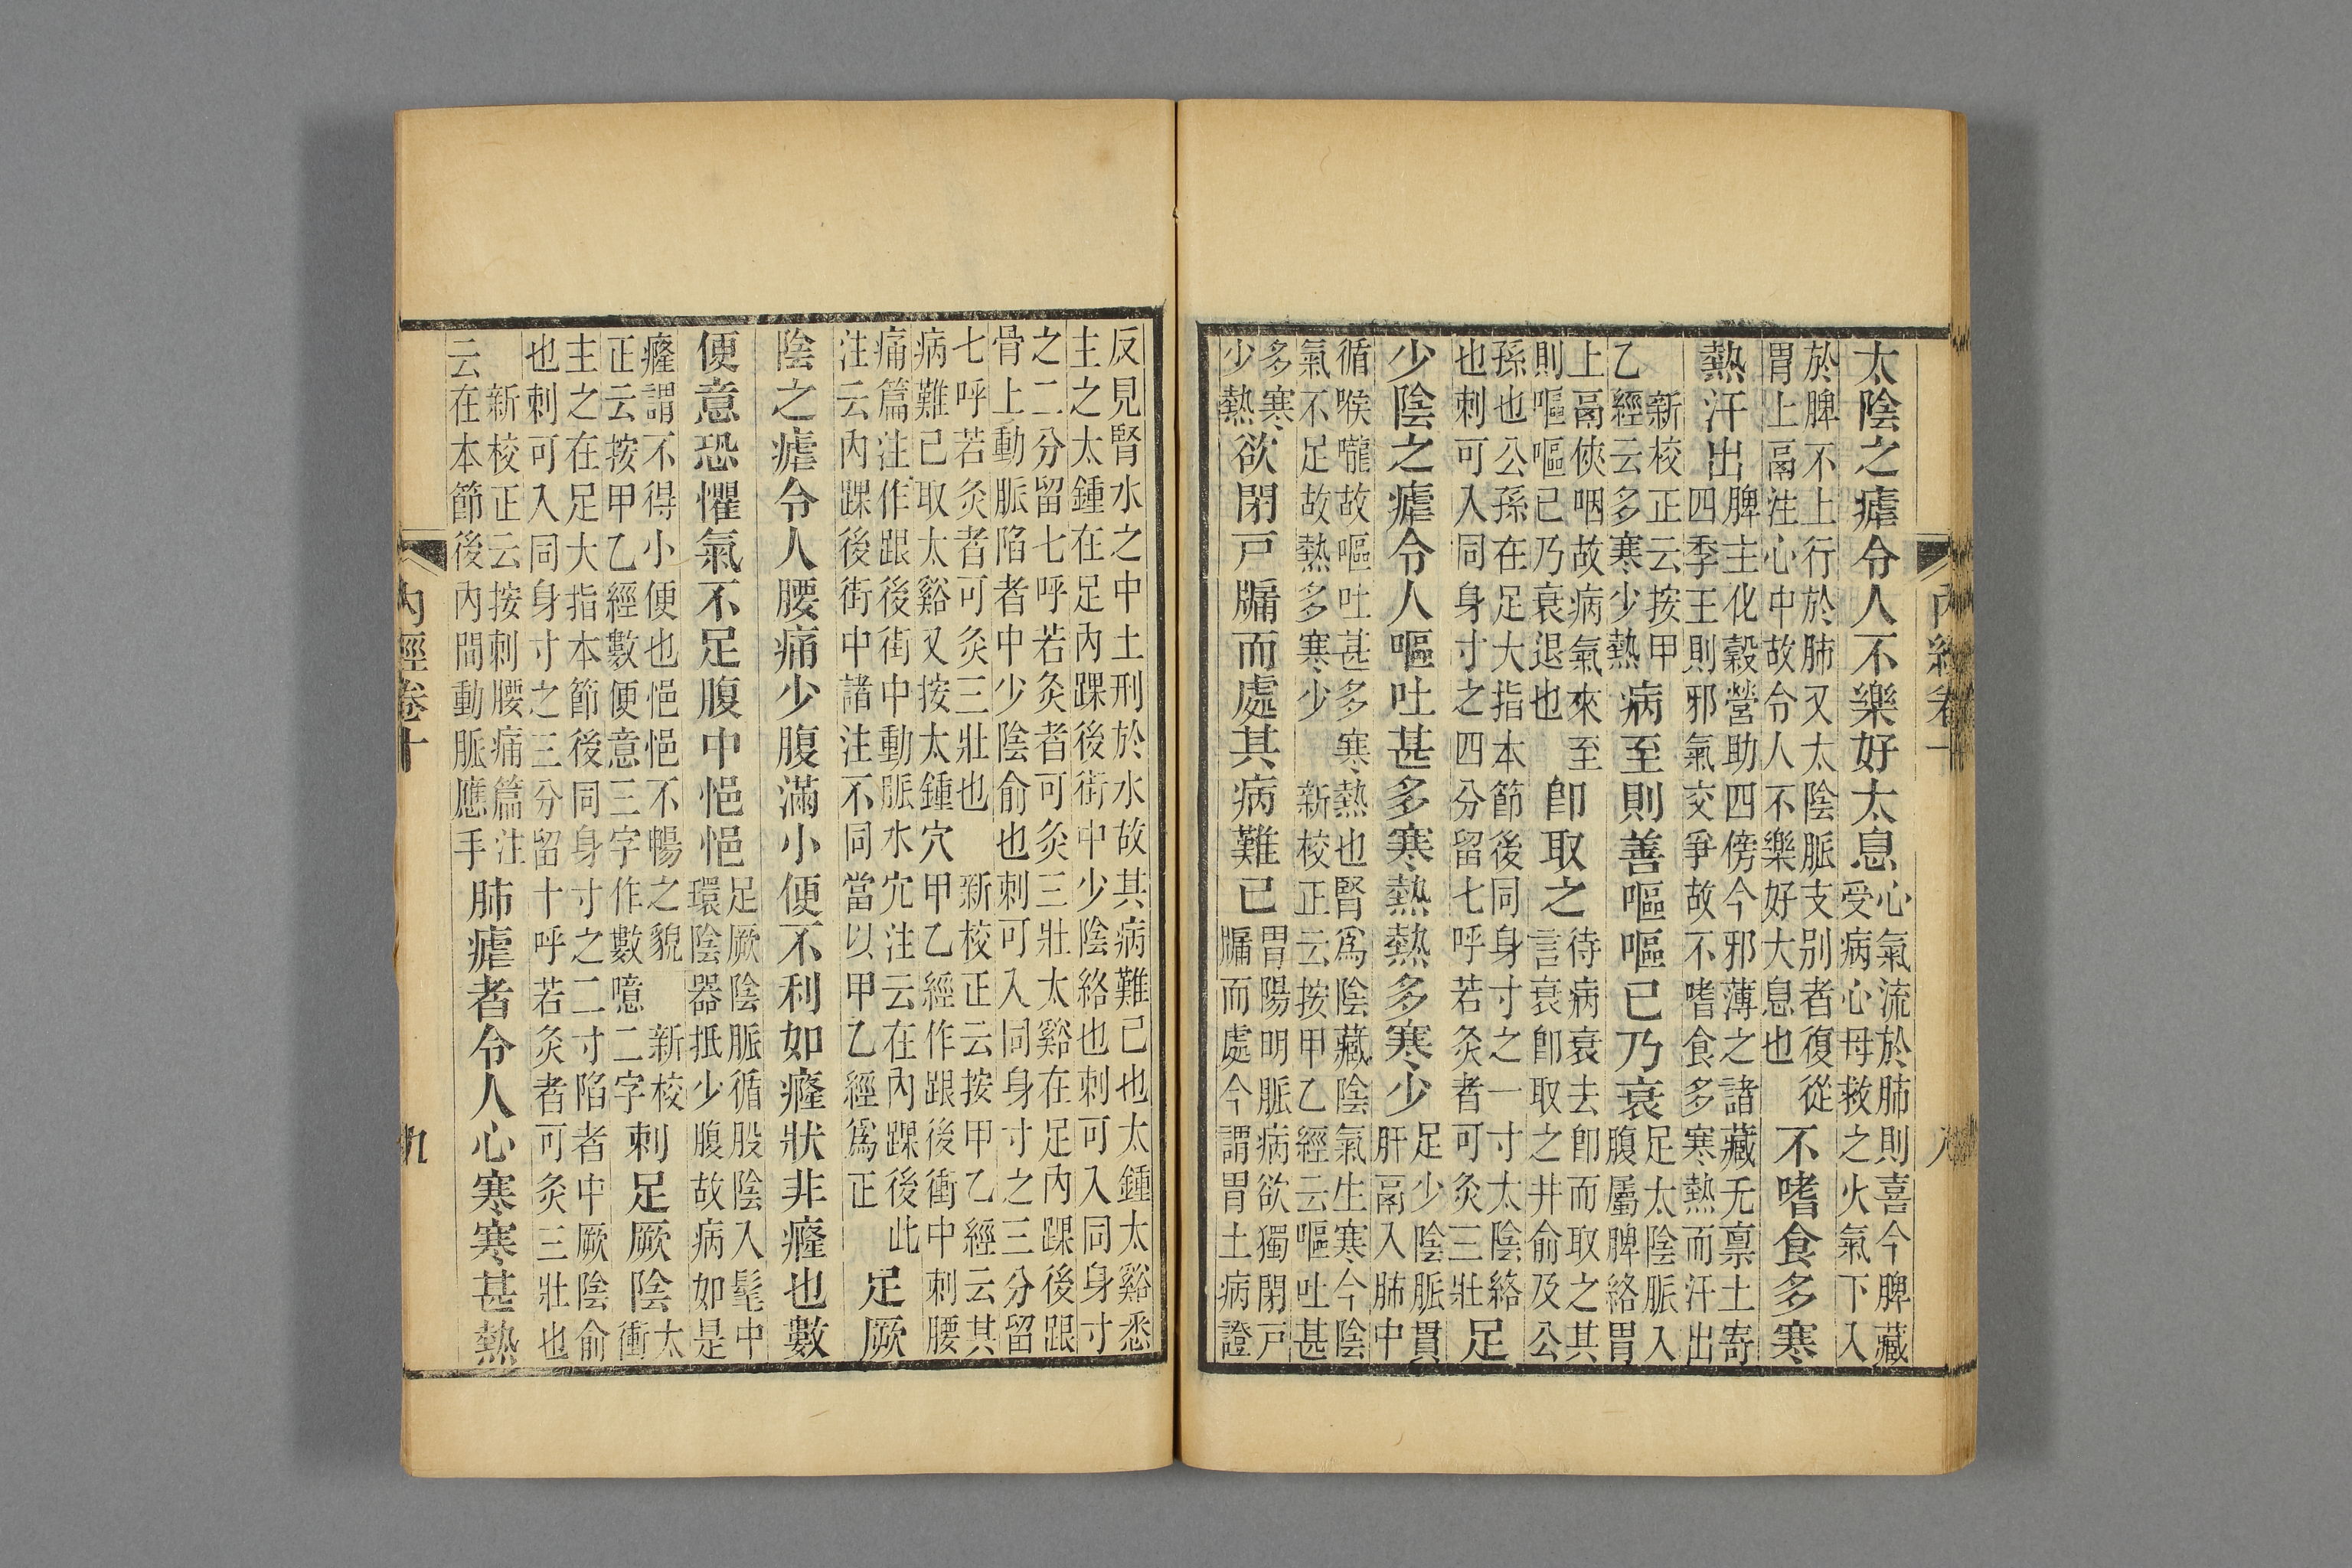 內經卷十
八
太陰之瘧令人不樂好太息心氣流於肺則喜今脾藏受病心母救之火氣下入
於脾不上行於肺又太陰脈支別者復從胃上鬲注心中故令人不樂好大息也不嗜食多寒
熱汗出脾主化穀營助四傍今邪薄之諸藏无稟土寄四季王則邪氣交爭故不嗜食多寒熱而汗出
新校正云按甲乙經云多寒少熱病至則善嘔嘔已乃衰足太陰脈入腹屬脾絡胃
上鬲俠咽故病氣來至則嘔嘔已乃衰退也卽取之待病衰去卽而取之其言衰衰卽取之井俞及公
孫也公孫在足大指本節後同身寸之一寸太陰絡也刺可入同身寸之四分留七呼若灸者可灸三壯足
少陰之瘧令人嘔吐甚多寒熱熱多寒少足少陰脈貫肝鬲入肺中
循喉嚨故嘔吐甚多寒熱也腎爲陰藏陰氣生寒今陰氣不足故熱多寒少　新校正云按甲乙經云嘔吐甚
多寒少熱欲閉戸牖而處其病難已胃陽明脈病欲獨閉戸牖而處今謂胃土病證
反見腎水之中土刑於水故其病難已也太鍾太谿悉主之太鍾在足內踝後街中少陰絡也刺可入同身寸
之二分留七呼若灸者可灸三壯太谿在足內踝後跟骨上動脈陷者中少陰俞也刺可入同身寸之三分留
七呼若灸者可灸三壯也　新校正云按甲乙經云其病難已取太谿又按太鍾穴甲乙經作跟後衝中刺腰
痛篇注作跟後街中動脈水穴注云在內踝後此注云內踝後街中諸注不同當以甲乙經爲正足厥
陰之瘧令人腰痛少腹滿小便不利如癃狀非癃也數
便意恐懼氣不足腹中悒悒足厥陰脈循股陰入髦中環陰器抵少腹故病如是
癃謂不得小便也悒悒不暢之貌　新校正云按甲乙經數便意三字作數噫二字刺足厥陰太衝
主之在足大指本節後同身寸之二寸陷者中厥陰俞也刺可入同身寸之三分留十呼若灸者可灸三壯也
新校正云按刺腰痛篇注云在本節後內間動脈應手肺瘧者令人心寒寒甚熱
內經卷十
九